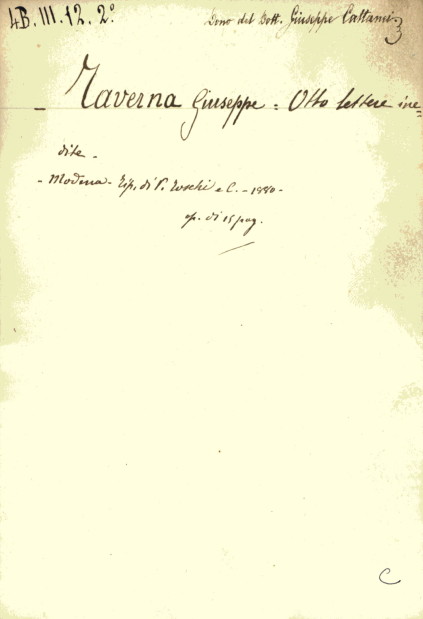 4B.III.12.2º
Dono del Dott. Giuseppe Cattani
3
- Taverna Giuseppe = Otto lettere ine=
dite -
- Modena - Tip. di P. Toschi e C. - 1880 -
op. di 15 pag.
C